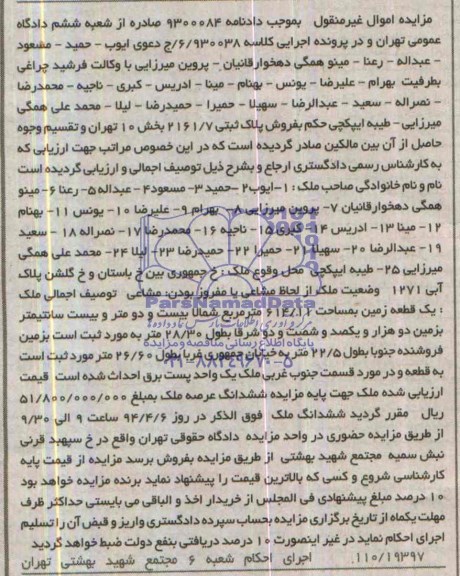 مزایده اموال غیرمنقول بموجب دادنامه ۹۳۰۰۰۸۴ صادره از شعبه ششم دادگاه
عمومی تهران و در پرونده اجرایی کلاسه ۶/۹۳۰۰۳۸/ج دعوی ایوب - حمید - مسعود
- عبداله - رعنا - مینو همگی دهخوارقانیان - پروین میرزایی با وکالت فرشید چراغی
بطرفیت بهرام - علیرضا - یونس - بهنام - مینا - ادریس - کبری - ناجیه - محمدرضا
- نصراله - سعید - عبدالرضا - سهیلا - حمیرا - حمیدرضا - لیلا - محمد علی همگی
میرزایی - طیبه ایپکچی حکم بفروش پلاک ثبتی ۲۱۶۱/۷ بخش ۱۰ تهران و تقسیم وجوه
حاصل از آن بین مالکین صادر گردیده است که در این خصوص مراتب جهت ارزیابی که
به کارشناس رسمی دادگستری ارجاع و بشرح ذیل توصیف اجمالی و ارزیابی گردیده است
نام و نام خانوادگی صاحب ملک : ۱-ایوب ۲-حمید ۳- مسعود ۴- عبداله ۵- رعنا ۶- مینو
همگی دهخوارقانیان ۷- پروین میرزایی ۸- بهرام ۹- علیرضا ۱۰- یونس ۱۱- بهنام
۱۲- مینا ۱۳- ادریس ۱۴- کبری ۱۵- ناجیه ۱۶- محمدرضا ۱۷- نصراله ۱۸- سعید
۱۹- عبدالرضا ۲۰- سهیلا ۲۱- حمیرا ۲۲- حمیدرضا ۲۳- لیلا ۲۴- محمد علی همگی
میرزایی ۲۵- طیبه ایپکچی محل وقوع ملک : خ جمهوری بین خ باستان و خ گلشن پلاک
آبی ۱۲۷۱ وضعیت ملک از لحاظ مشاعی یا مفروز بودن: مشاعی توصیف اجمالی ملک
: یک قطعه زمین بمساحت ۶۱۴/۱۶ مترمربع شمالا بیست و دو متر و بیست سانتیمتر
بزمین دو هزار و یکصد و شصت و دو شرقا بطول ۲۸/۳۰ متر به مورد ثبت است بزمین
فروشنده جنوبا بطول ۲۲/۵ متر به خیابان جمهوری غربا بطول ۲۶/۶۰ متر مورد ثبت است
به قطعه و در مورد قسمت جنوب غربی ملک یک واحد پست برق احداث شده است قیمت
ارزیابی شده ملک جهت پایه مزایده ششدانگ عرصه ملک بمبلغ ۵۱/۸۰۰/۰۰۰/۰۰۰
ریال مقرر گردید ششدانگ ملک فوق الذکر در روز ۹۴/۴/۶ ساعت ۹ الی ۹/۳۰
از طریق مزایده حضوری در واحد مزایده دادگاه حقوقی تهران واقع در خ سپهبد قرنی
نبش سمیه مجتمع شهید بهشتی از طریق مزایده بفروش برسد مزایده از قیمت پایه
کارشناسی شروع و کسی که بالاترین قیمت را پیشنهاد نماید برنده مزایده خواهد بود
۱۰ درصد مبلغ پیشنهادی فی المجلس از خریدار اخذ و الباقی می بایستی حداکثر ظرف
مهلت یکماه از تاریخ برگزاری مزایده بحساب سپرده دادگستری واریز و قبض آن را تسلیم
اجرای احکام نماید در غیر اینصورت ۱۰ درصد دریافتی بنفع دولت ضبط خواهد گردید
۱۱۰/۱۹۳۹۷. اجرای احکام شعبه ۶ مجتمع شهید بهشتی تهران
ParsNamadData
پایگاه اطلاع رسانی مناقصه و مزایده
۰۲۱-۸۸۳۴۹۶۷۰-۵